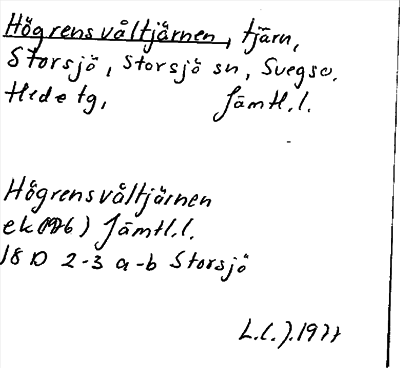 Högrensvåltjärnen, tjärn,
Storsjö, Storsjö sn, Svegs
Hede tg, Jämtl.l.
Högrensvåltjärnen
ek (1976) Jämtl.l.
18 D 2-3 a-b Storsjö
L.l.J.1977